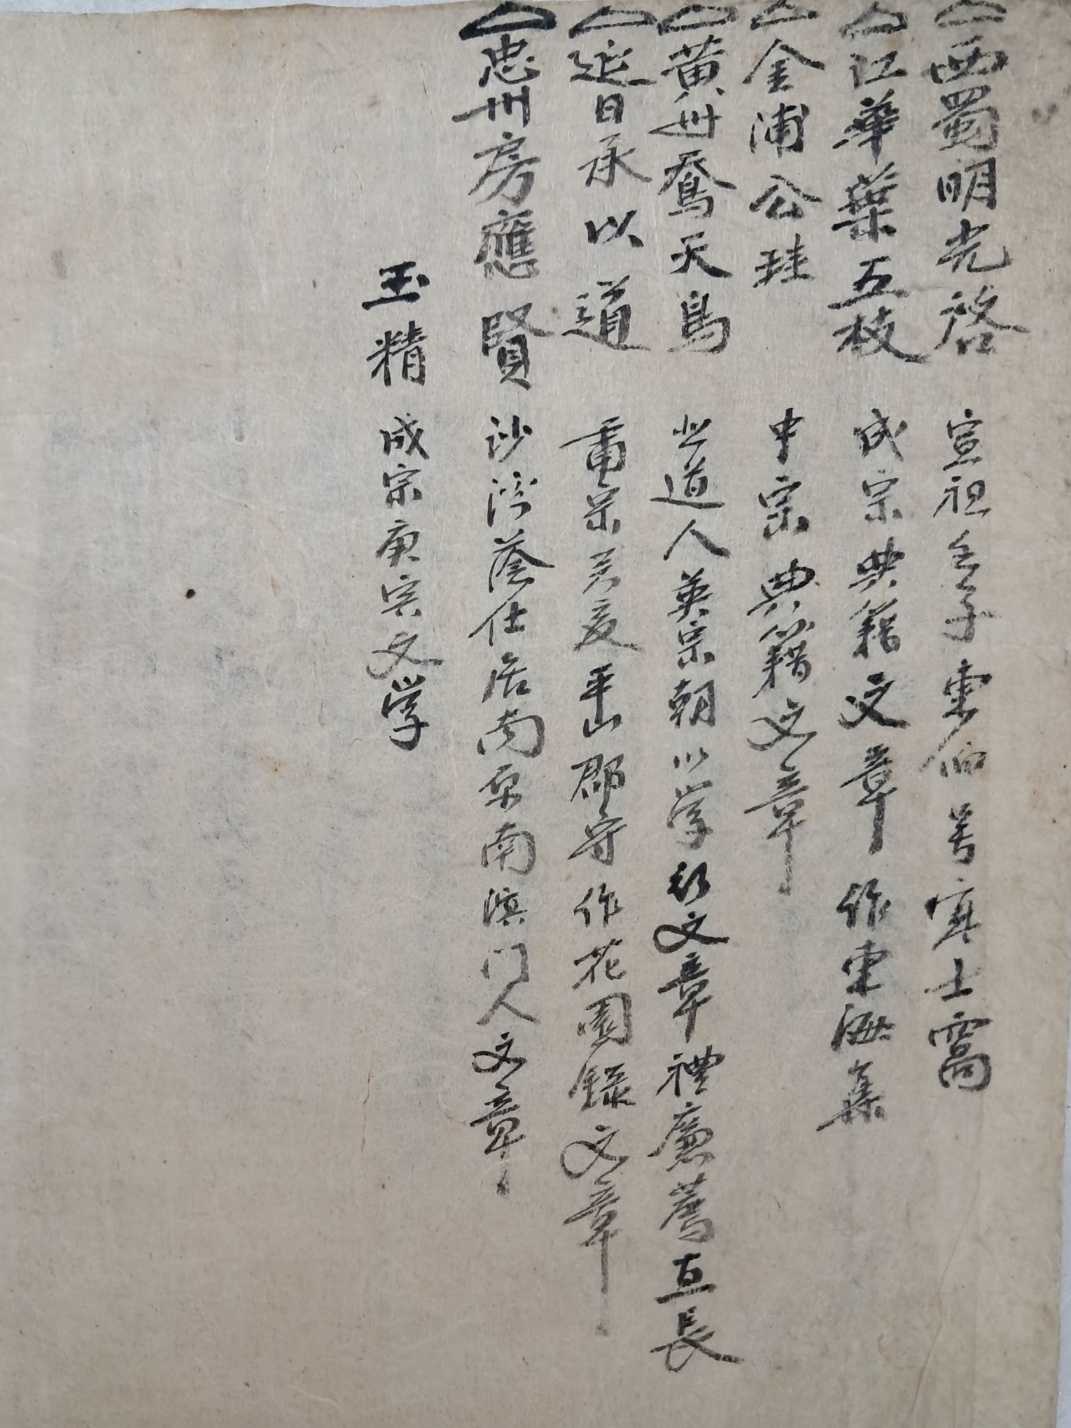 △西蜀明光啓 宣祖壬子東伯号寒士窩
△江華葉五枝 成宗典籍文章作東海集
△金浦公珪 中宗典籍文章
△黄州喬天島 道人英宗朝以学行文章禮廉薦直長
△延日承以道 平山郡守作花園錄文章
△忠州房應賢 沙溪蔭仕居南原南溟门人文章
玉精 成宗庚寅文学